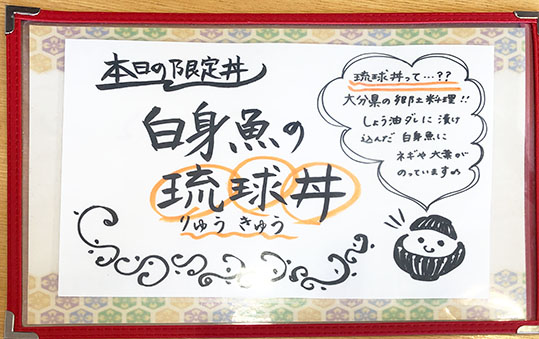 本日の限定丼
白身魚の
琉球丼
りゅうきゅう
琉球丼って…??
大分県の郷土料理!!
しょう油ダレに漬け
込んだ白身魚に
ネギや大葉が
のっています